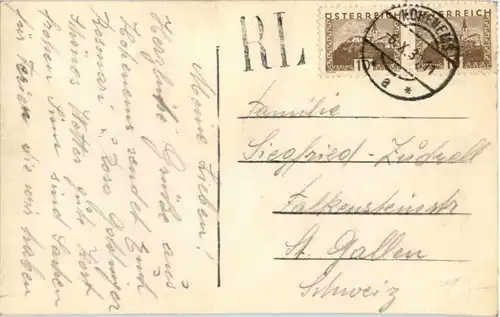 Meine Lieben!
Herzliche Grüße aus
Hohenems sendet Euch
Rosmarie Rosa
Schönes Wetter gute Kost
frohen Sinn sind Sachen
für Ferien die wir haben
RL
ÖSTERREICH ÖSTERREICH
HOHENEMS
a
*
Familie
Siegfried-
Falkensteinstr
St. Gallen
Schweiz